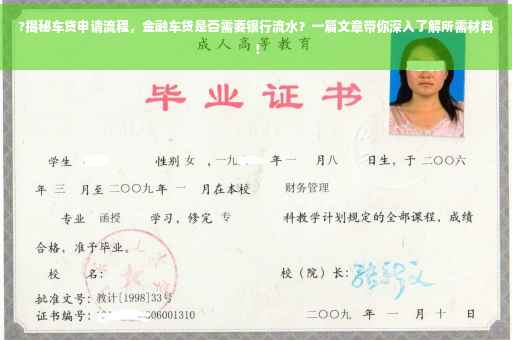 ?揭秘车贷申请流程，金融车贷是否需要银行流水？一篇文章带你深入了解所需材料
！
成人高等
毕业证书
学生 性别 女 ，一九 年一 月八 日生，于二〇〇六
年 三 月至二〇〇九年 一 月在本校 财务管理
专业 函授 学习，修完 专 科教学计划规定的全部课程，成绩
合格，准予毕业。
校 名： 校（院）长：
批准文号：教计[1998]33号
证书编号： 06001310 二〇〇九 年 一 月 十 日